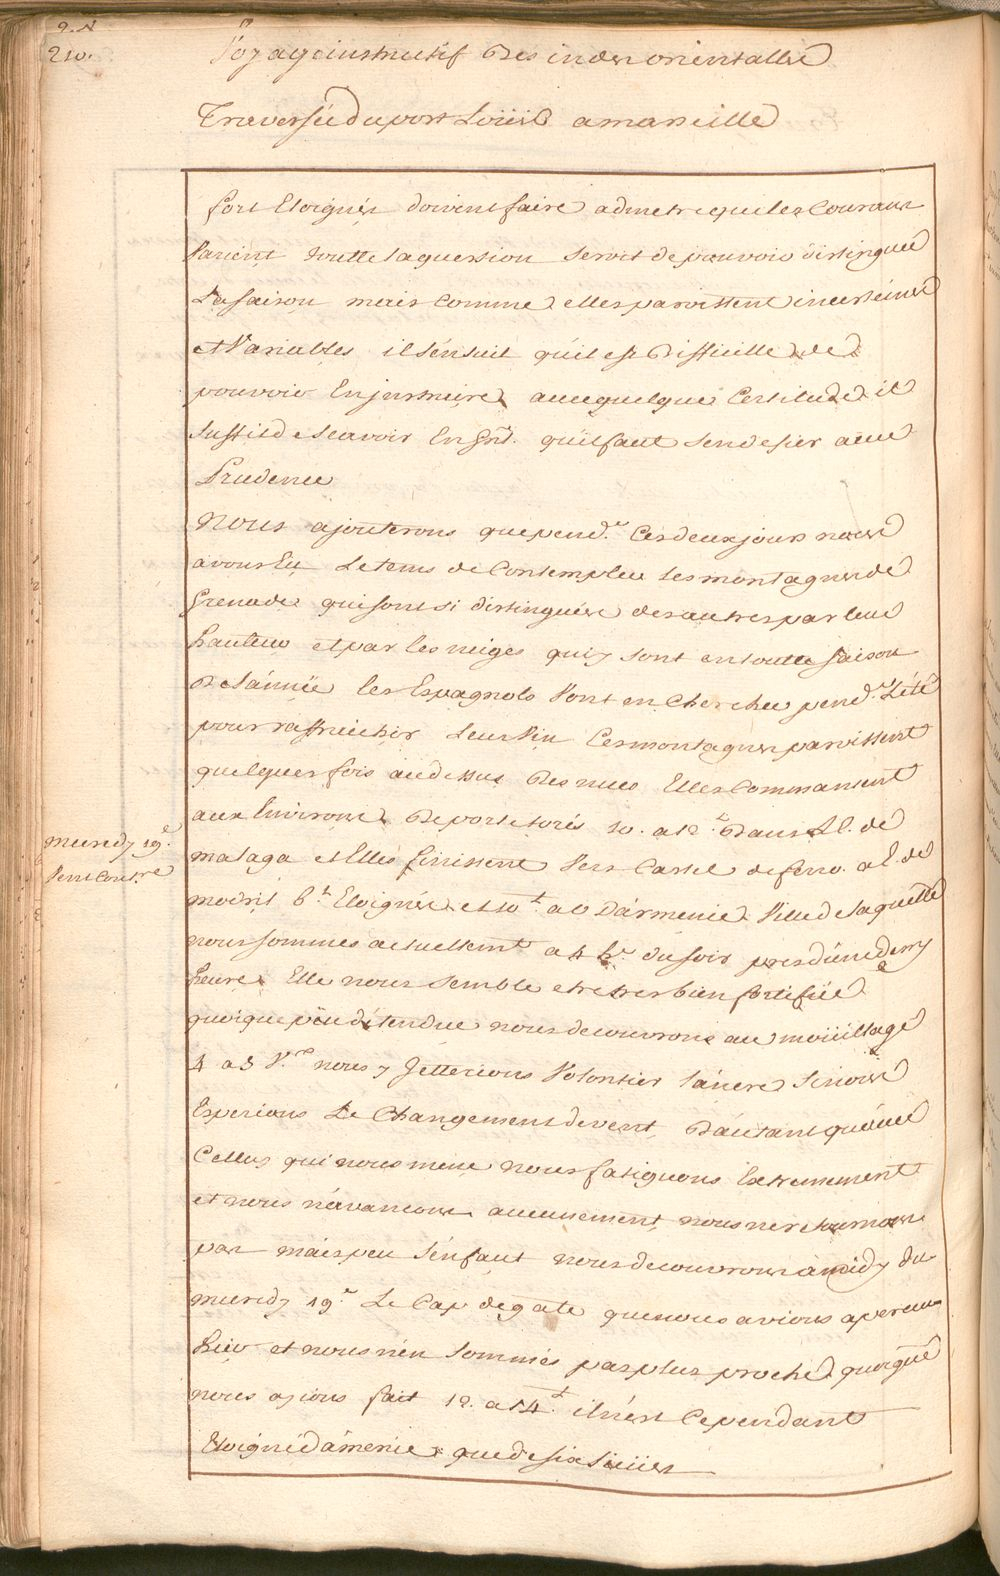 210.
Voyage instructif Des indes orientalles
Traversée du port Loüis a marseille
fort Eloignés doivent faire admetre que les Courans
Varient toutte la question seroit de pouvoir distinguer
La saison mais comme elles paroissent incertaines
et Variables il s'ensuit qu'il est Difficille de
pouvoir En juger avec quelque Certitude il
suffit de scavoir En gñl. qu'il faut s'en defier avec
Prudence
Nous ajouterons que pend.t Ces deux jours nous
avons Eu Le tems de Contempler Les montagnes de
Grenade qui sont si distinguées des autres par leur
hauteur et par les neiges qui y sont en toutte saison
De L'année les Espagnols Vont en Chercher pend.t L'été
pour raffraichir Leur Vin Ces montagnes paroissent
quelques fois au dessus Des nues Elles Commancent
aux Environs De 10. a 12. Dans L'E. de
malaga et Elles finissent Vers Castel de ferro. a l'E. de
modril 6.t Eloignée et 10.t a O D'armerie Ville de laquelle
nous sommes actuellemt a 4 h.r du soir pres d'une demy
heure Elle nous semble etre tres bien fortifiée
quoique peu étendue nous decouvrons au moüillage
4 a 5 V.x nous y Jetterions Volontier L'ancre si nous
Esperions Le Changement de vent D'autant qu'avec
Celluy qui nous mene nous fatiguons Extremement
et nous n'avancons aucunement nous ne retournons
pas mais peu s'en faut nous decouvrons à midy du
mercredy 19.e Le Cap de gate que nous avions apercu
hier et nous n'en sommes pas plus proche quoique
nous ayions fait 12. a 14.t il n'est Cependant
Eloigné d'amerie que de six Lieües
mercredy 19.e
Vent Contre